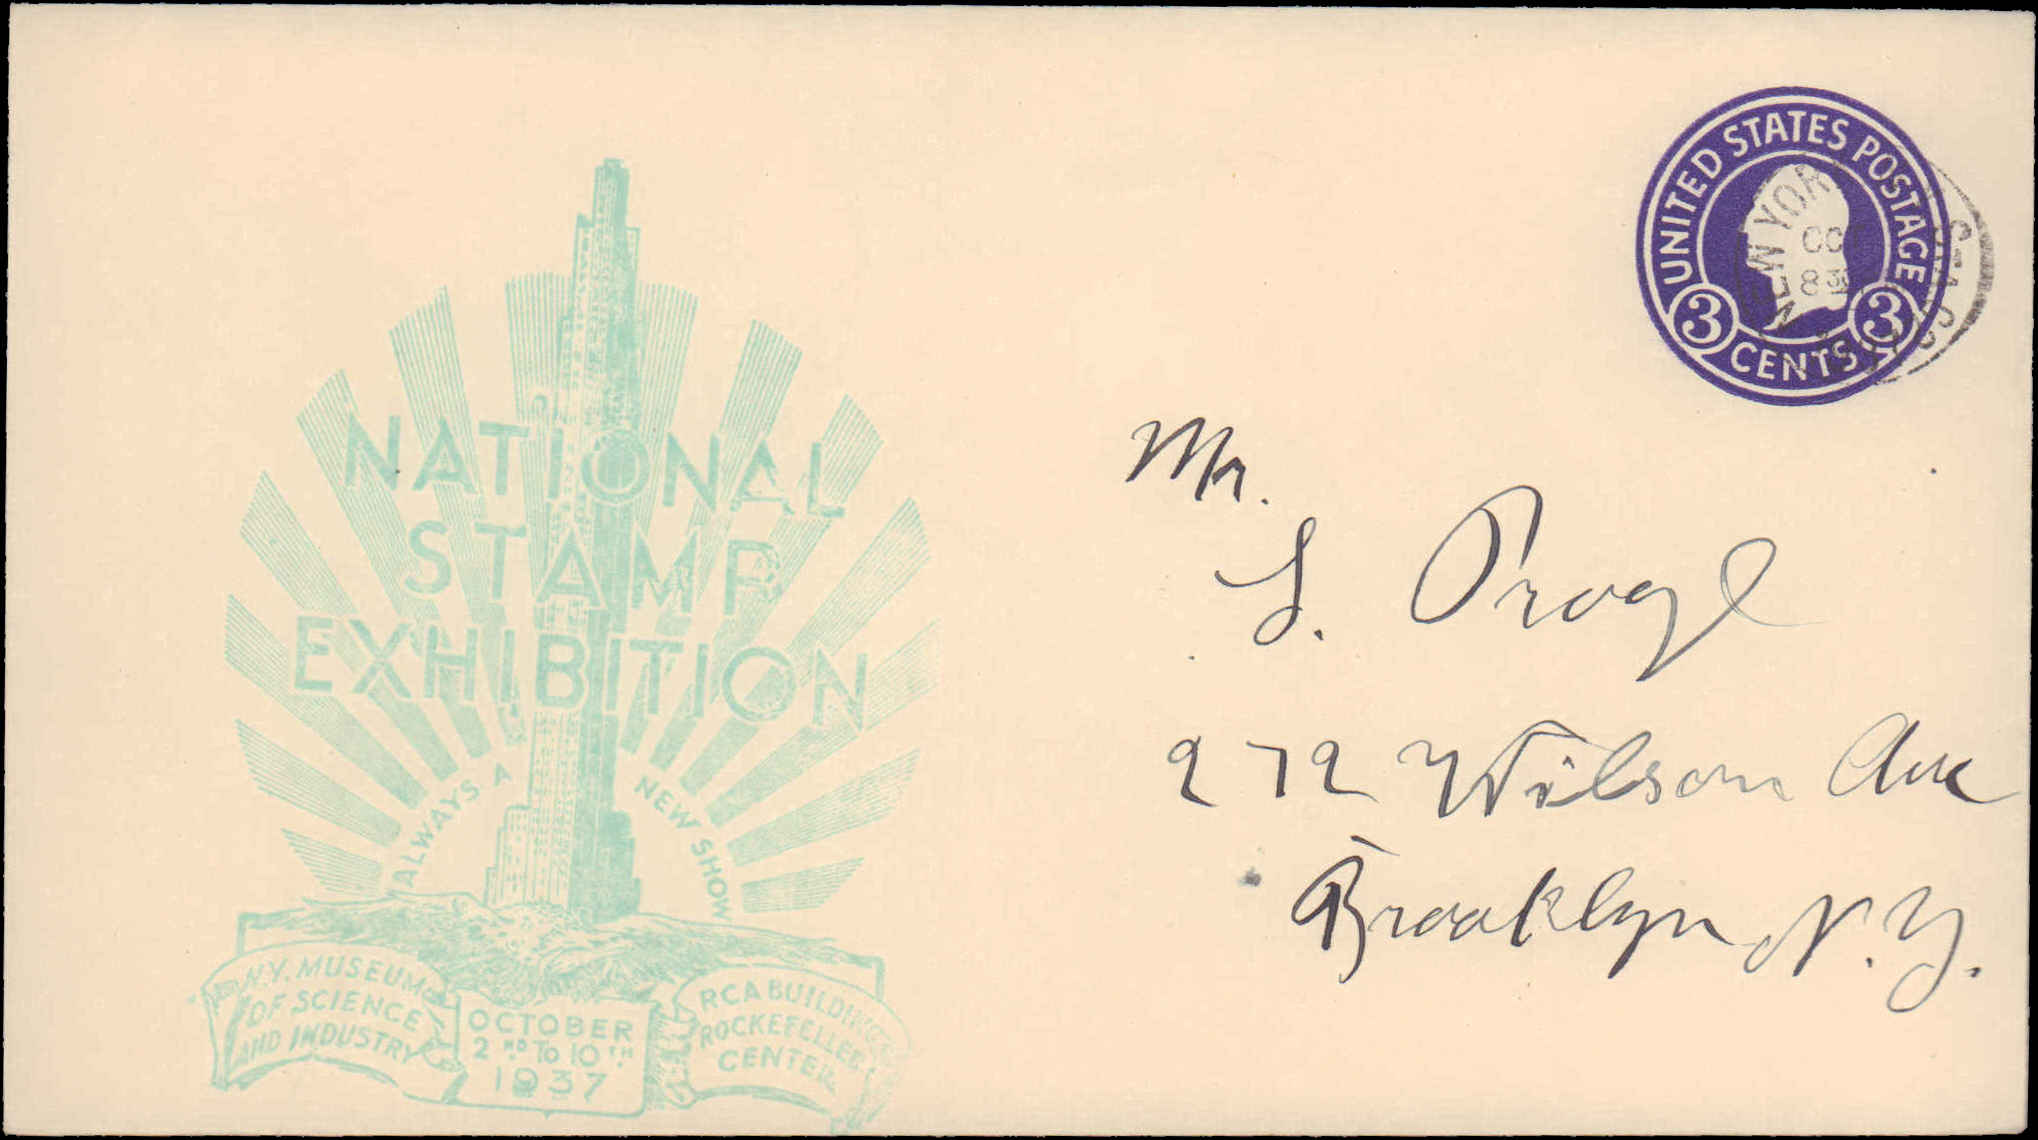 UNITED STATES POSTAGE
3 CENTS 3
NEW YOR
OC
8 30
NATIONAL
STAMP
EXHIBITION
ALWAYS A NEW SHOW
N.Y. MUSEUM
OF SCIENCE
AND INDUSTRY
OCTOBER
2ND TO 10TH
1937
RCA BUILDING
ROCKEFELLER
CENTER
Mr.
S. Progl
272 Wilson Ave
Brooklyn N.Y.